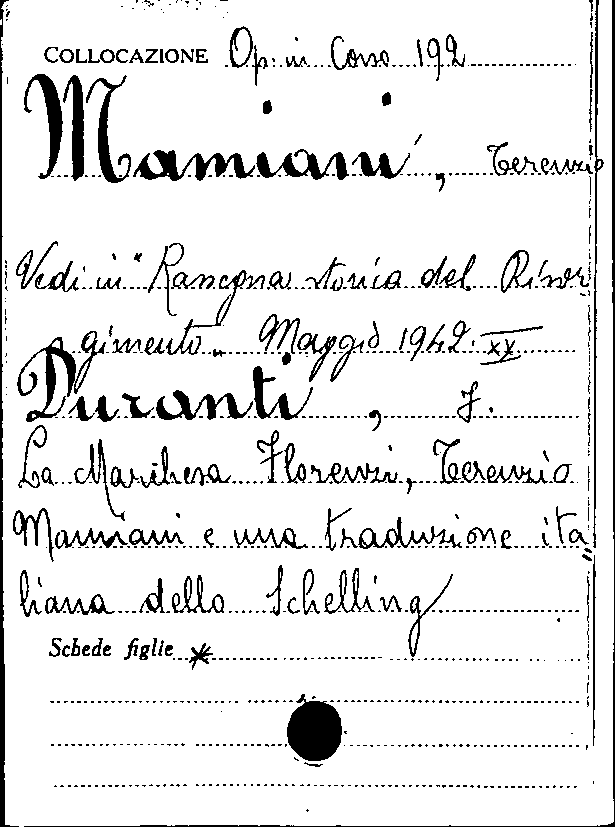 COLLOCAZIONE Op. in Corso 192
Mamiani, Terenzio
Vedi in "Rassegna storica del Risor
gimento„ Maggio 1942. XX
Duranti, J.
La Marchesa Florenzi, Terenzio
Mamiani e una traduzione ita„
liana dello Schelling
Schede figlie *